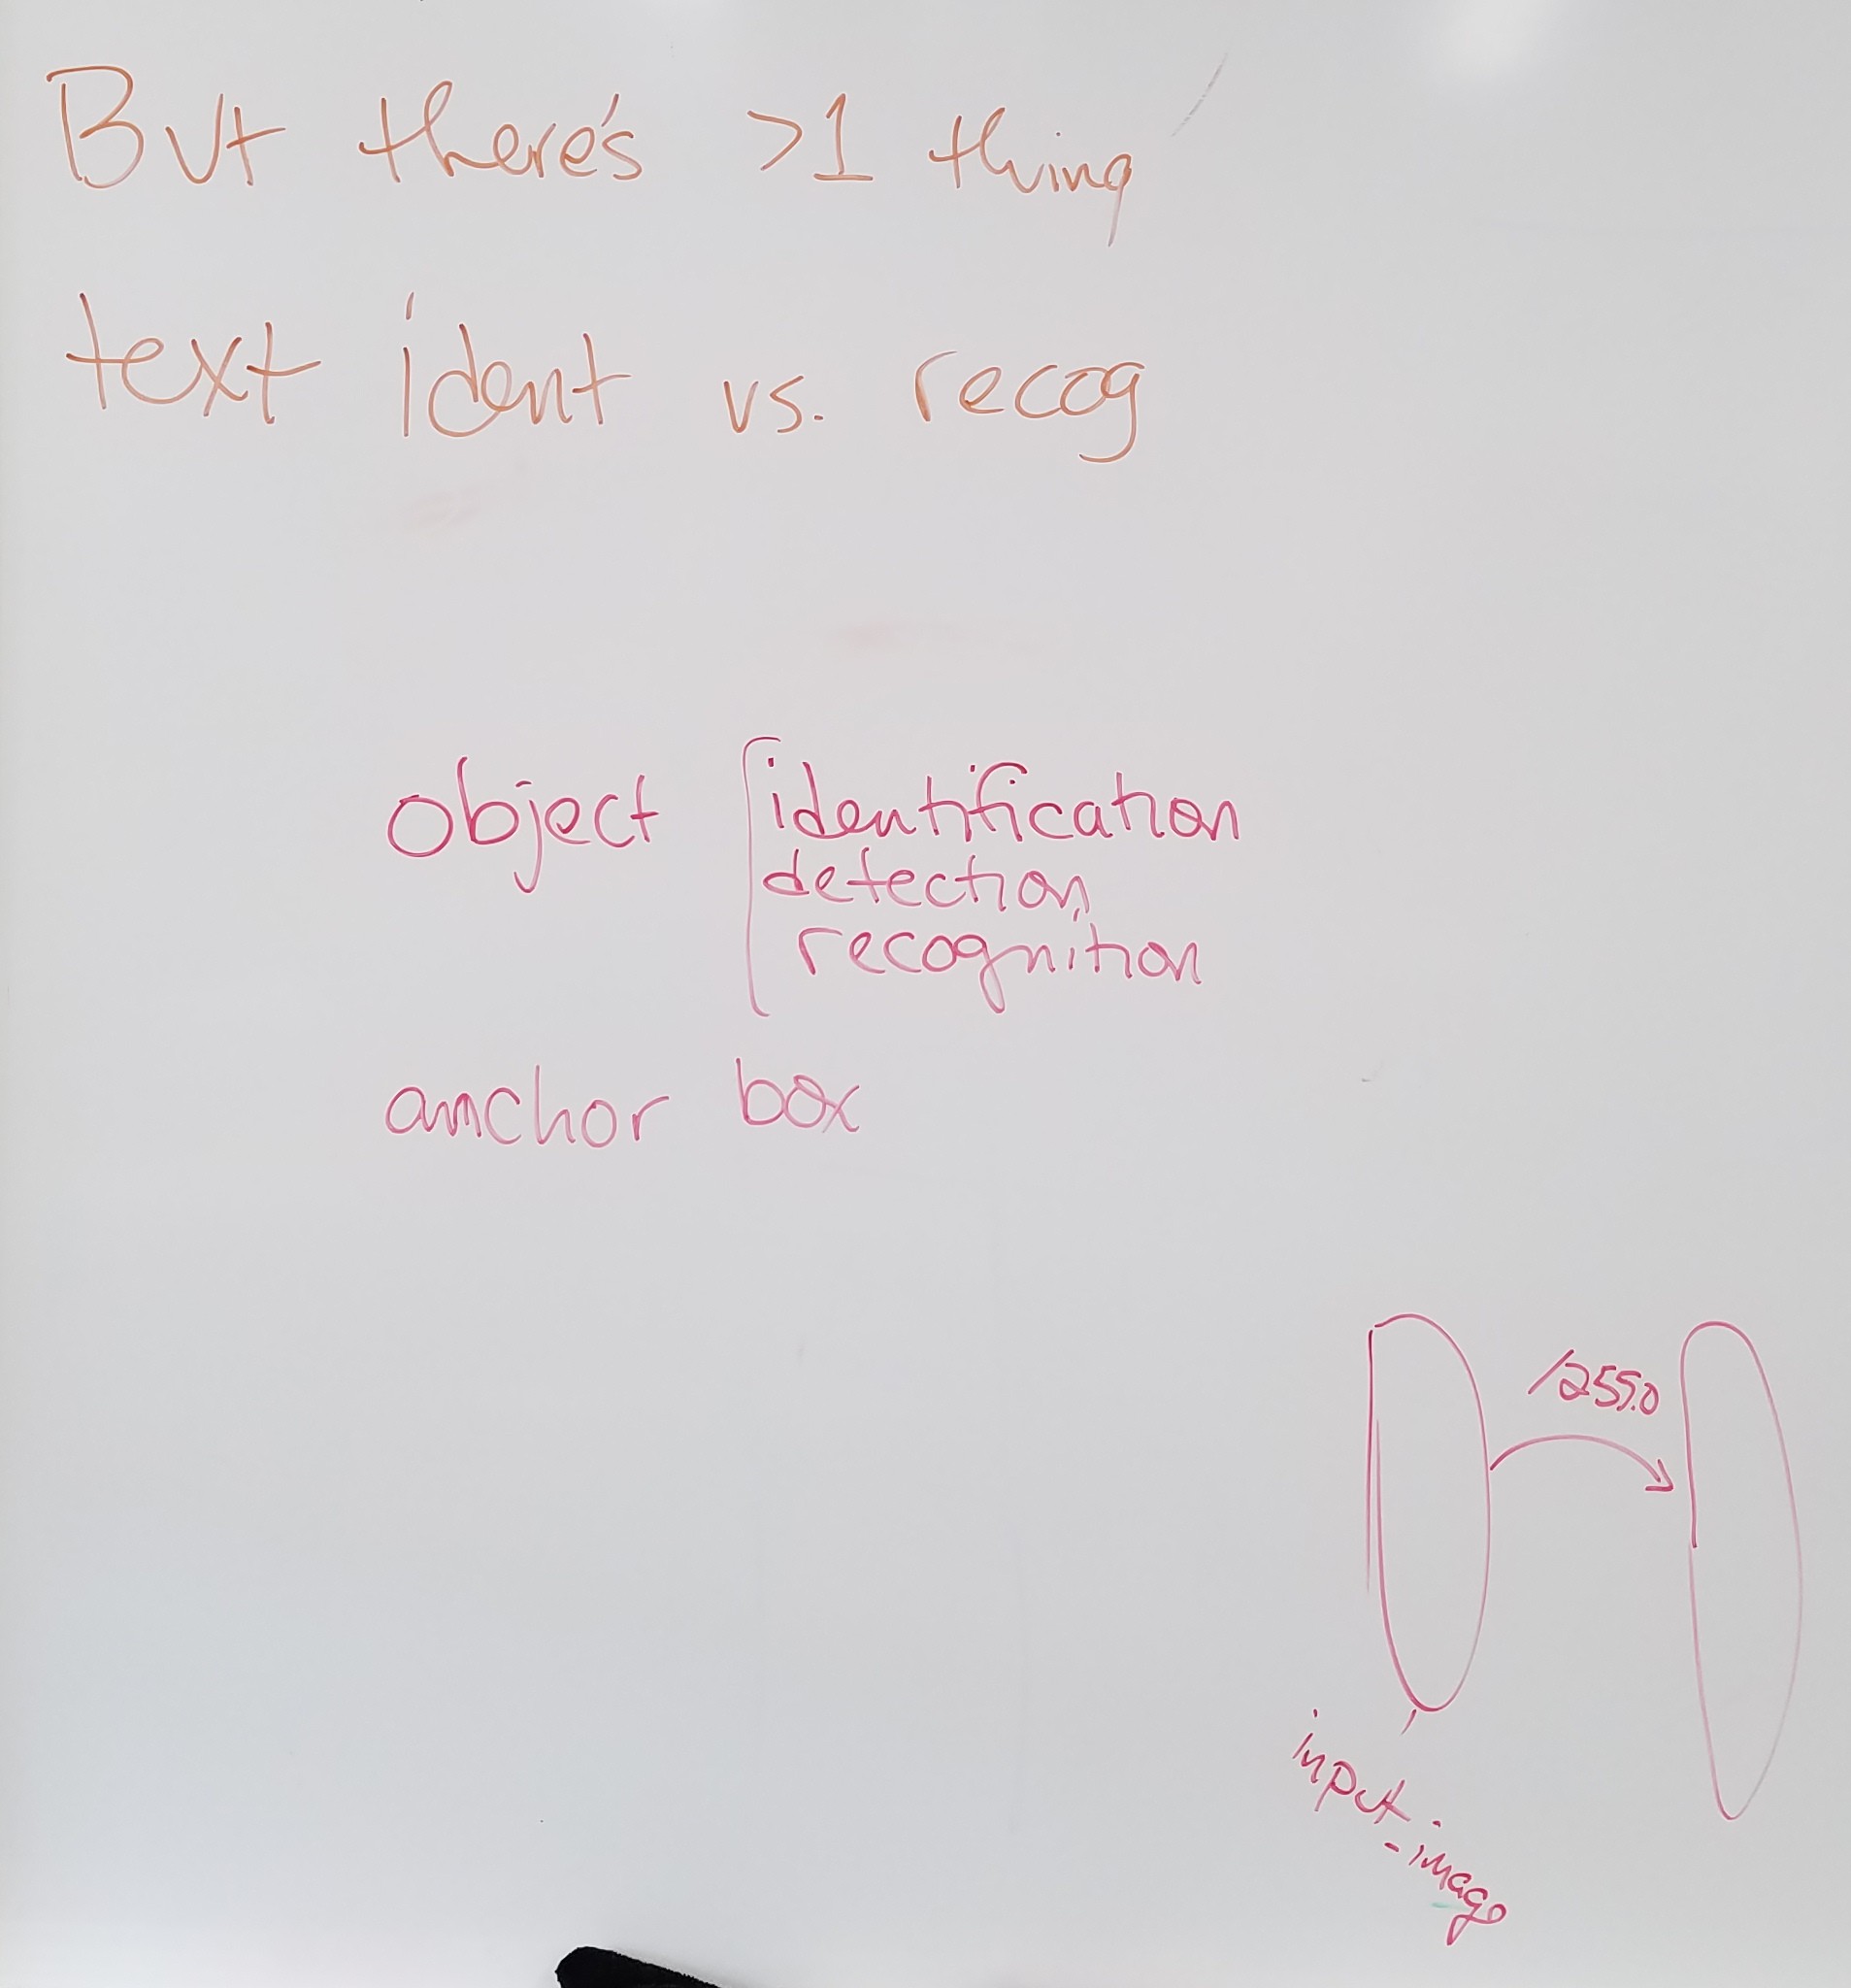 But there's >1 thing
text ident vs. recog
object
identification
detection
recognition
anchor box
/255.0
input_image